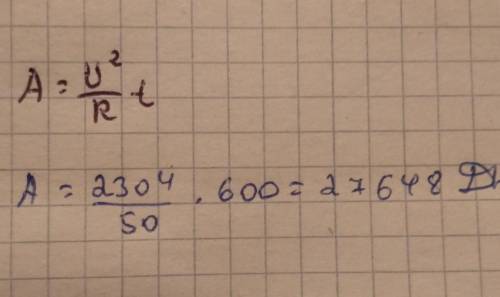 A = U²/R t
A = 2304/50 · 600 = 27648 Дж